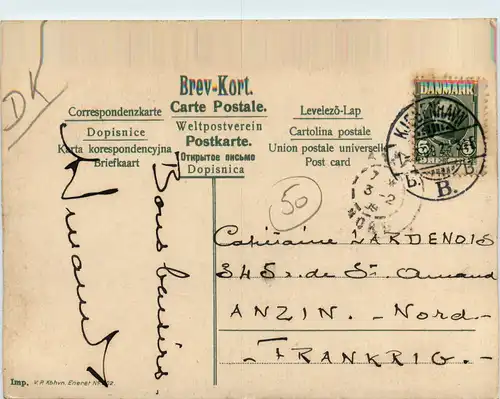 DK
Brev-Kort.
Carte Postale.
Weltpostverein
Postkarte.
Открытое письмо
Dopisnica
Correspondenzkarte
Dopisnice
Karta korespondencyjna
Briefkaart
Levelező-Lap
Cartolina postale
Union postale universelle
Post card
DANMARK
KJØBENHAVN
B. B.
B.
50
Bons baisirs
Armand
Capitaine LARDENOIS
345 r. de St. Amand
ANZIN. - Nord -
- FRANKRIG. -
Imp. V. P. Kbhvn. Eneret No